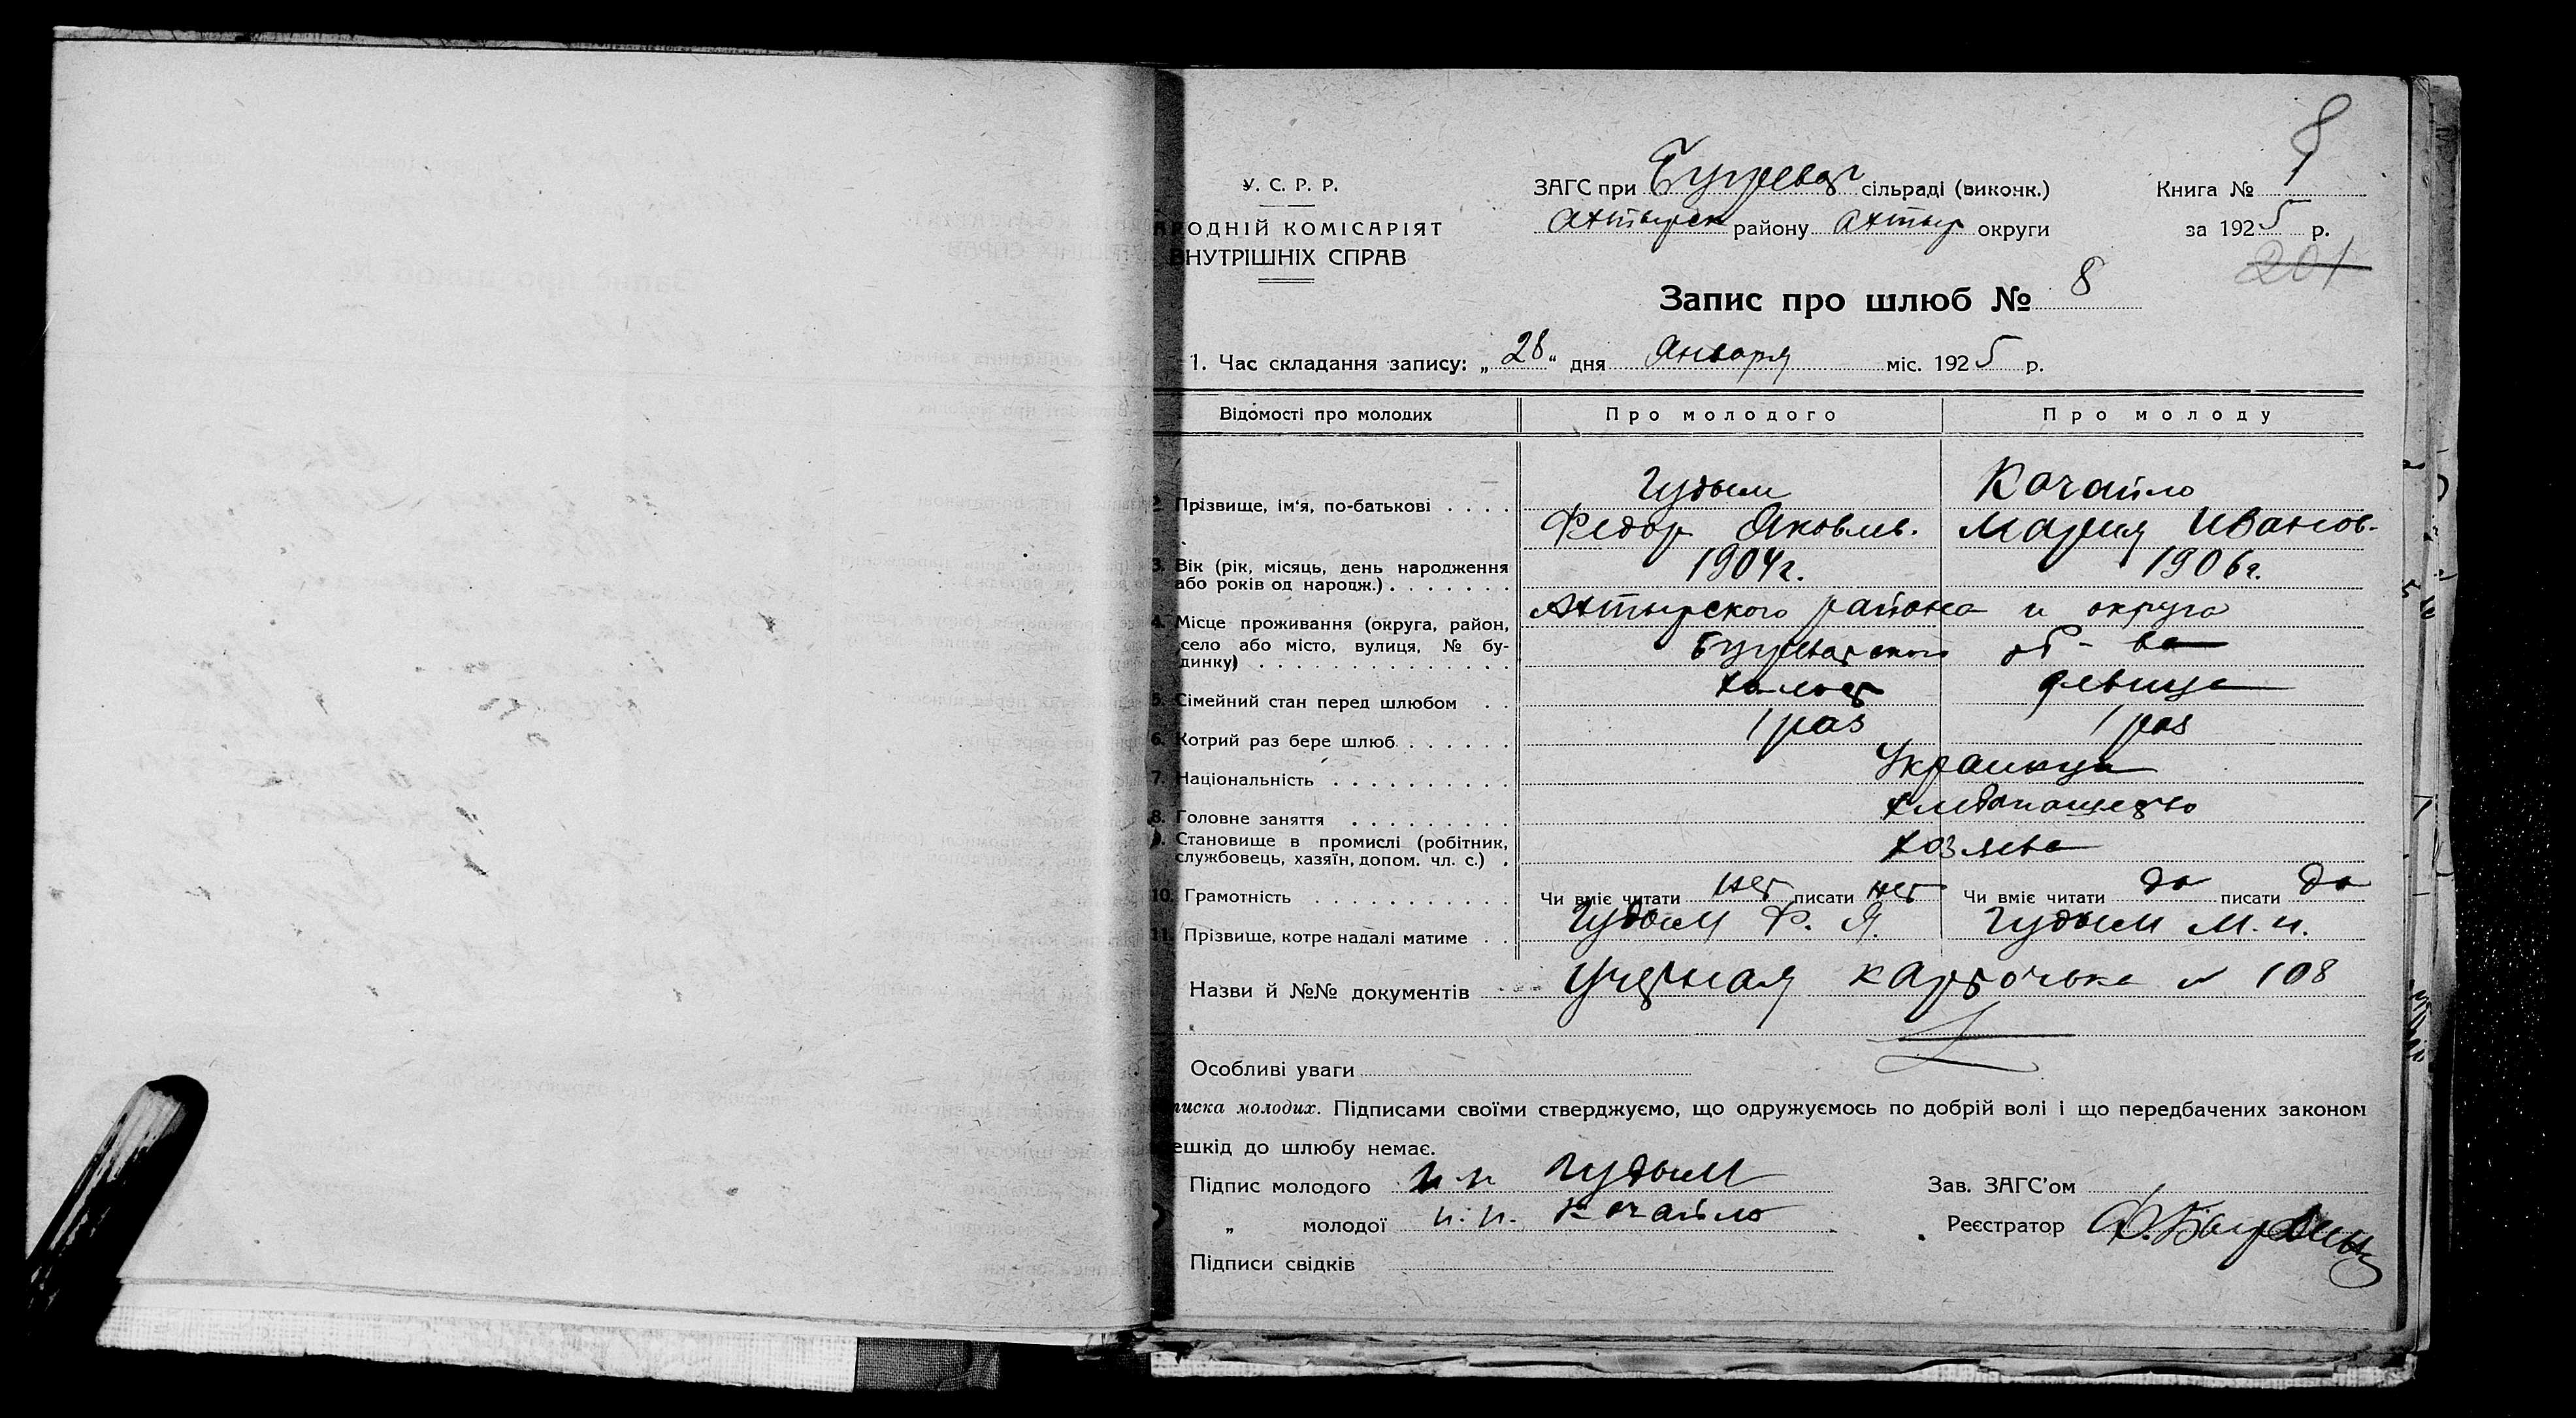 8
У. С. Р. Р.
АРОДНІЙ КОМІСАРІЯТ
ВНУТРІШНІХ СПРАВ
ЗАГС при Бугреват сільраді (виконк.)
Ахтырск району Ахтыр округи
Книга № 1
за 1925 р.
201
Запис про шлюб № 8
1. Час складання запису: „28" дня Января міс. 1925 р.
Відомості про молодих Про молодого Про молоду
2. Прізвище, ім'я, по-батькові . . . . Гудым Кочайло
Федор Яковлев. Мария Иванов-
3. Вік (рік, місяць, день народження або років од народж.) . . . . . . . 1904 г. 1906 г.
4. Місце проживання (округа, район, село або місто, вулиця, № будинку) . . . . . . . . . . . . . . . Ахтырского района и округа
Бугреватского об-ва
5. Сімейний стан перед шлюбом . . холост девица
6. Котрий раз бере шлюб . . . . . . 1 раз 1 раз
7. Національність . . . . . . . . . . Украинцы
8. Головне заняття . . . . . . . . . Хлебопашество
9. Становище в промислі (робітник, службовець, хазяїн, допом. чл. с.) . Хозяева
10. Грамотність . . . . . . . . . . . Чи вміє читати нет писати нет Чи вміє читати да писати да
11. Прізвище, котре надалі матиме . . Гудым Ф. Я. Гудым М. И.
Назви й №№ документів Учетная карточка № 108
Особливі уваги
писка молодих. Підписами своїми стверджуємо, що одружуємось по добрій волі і що передбачених законом
ешкід до шлюбу немає.
Підпис молодого н. н. Гудым
Зав. ЗАГС'ом
„ молодої н. н. Кочайло
Реєстратор
Підписи свідків